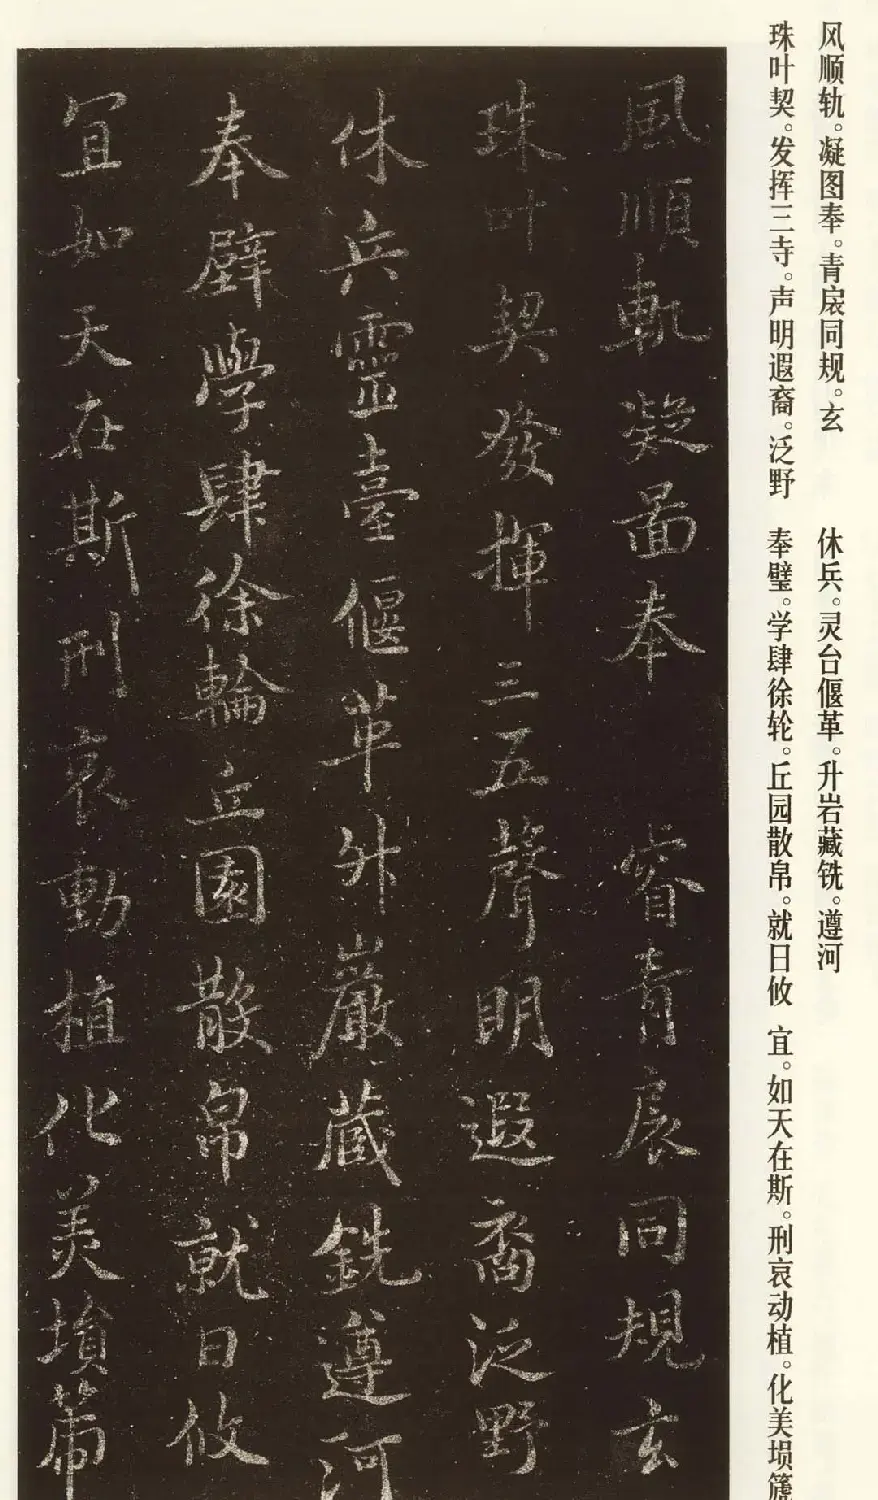 风顺轨。凝图奉。青扆同规。玄
珠叶契。发挥三寺。声明遐裔。泛野
休兵。灵台偃革。升岩藏铣。遵河
奉璧。学肆徐轮。丘园散帛。就日攸
宜。如天在斯。刑哀动植。化美埙篪
風順軌凝啚奉 睿青扆同規玄
珠叶契發揮三五聲明遐裔泛野
休兵靈臺偃革升巖藏銑遵河
奉璧學肆徐輪丘園散帛就日攸
宜如天在斯刑哀動植化美塤篪